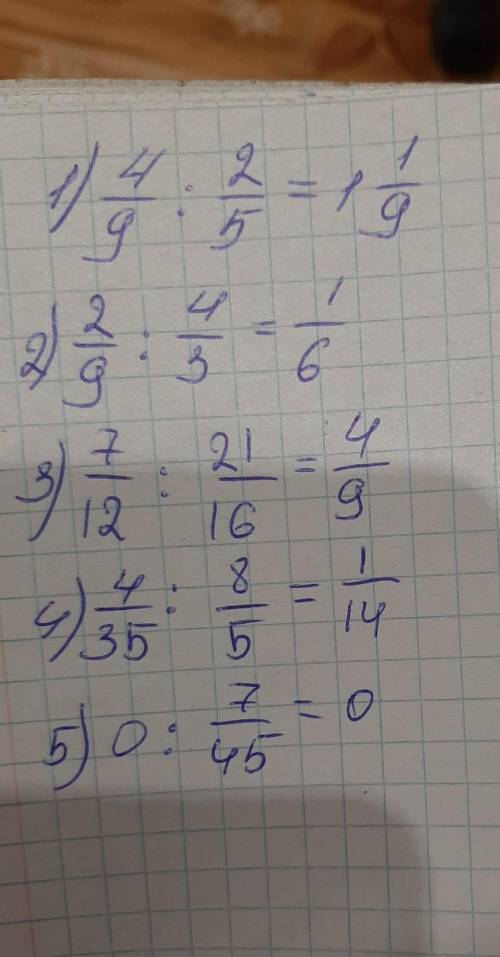 1) 4/9 : 2/5 = 1 1/9
2) 2/9 : 4/3 = 1/6
3) 7/12 : 21/16 = 4/9
4) 4/35 : 8/5 = 1/14
5) 0 : 7/45 = 0